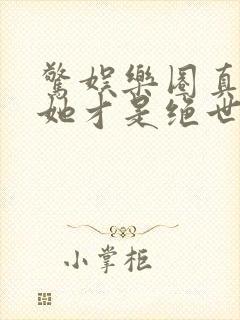 驚娛樂圈真
她才是绝世
小掌柜